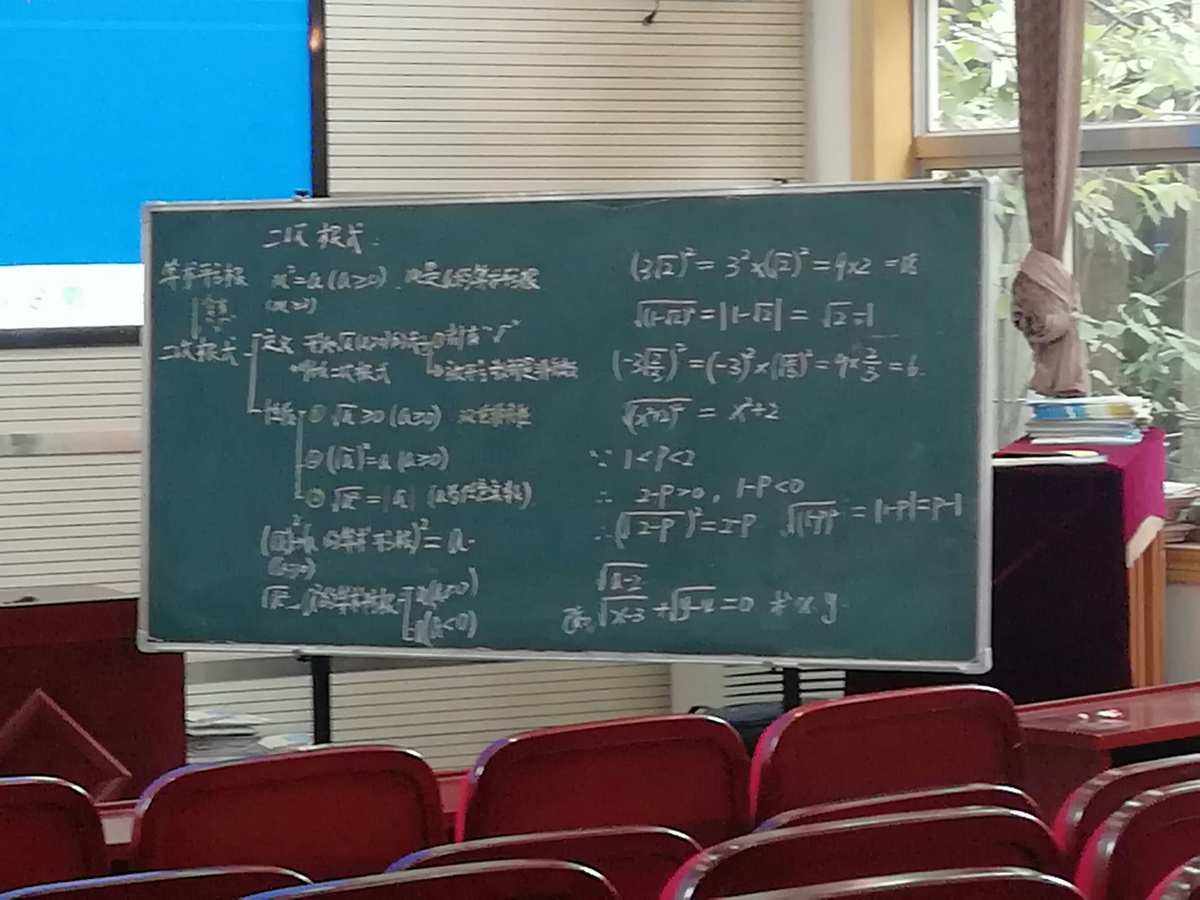 二次根式
算术平方根 x²=a(a≥0). x是a的算术平方根
(x≥0)
二次根式 定义 形如√a(a≥0)的式子
叫做二次根式
性质 ① √a≥0(a≥0) 双重非负性
② (√a)²=a(a≥0)
③ √a²=|a|
(√a)²=(a的算术平方根)²=a.
(a≥0)
(a≥0)
(a<0)
(3√2)²=3²×(√2)²=9×2=18
√(1-√2)²=|1-√2|=√2-1
(-3√2/3)²=(-3)²×(√2/3)²=9×2/3=6.
√(x²+2)²=x²+2
∵ 1<P<2
∴ 2-P>0, 1-P<0
∴ (√2-P)²=2-P √(1-P)²=|1-P|=P-1
√a-2
√x-3+√y-4=0 求x.y.